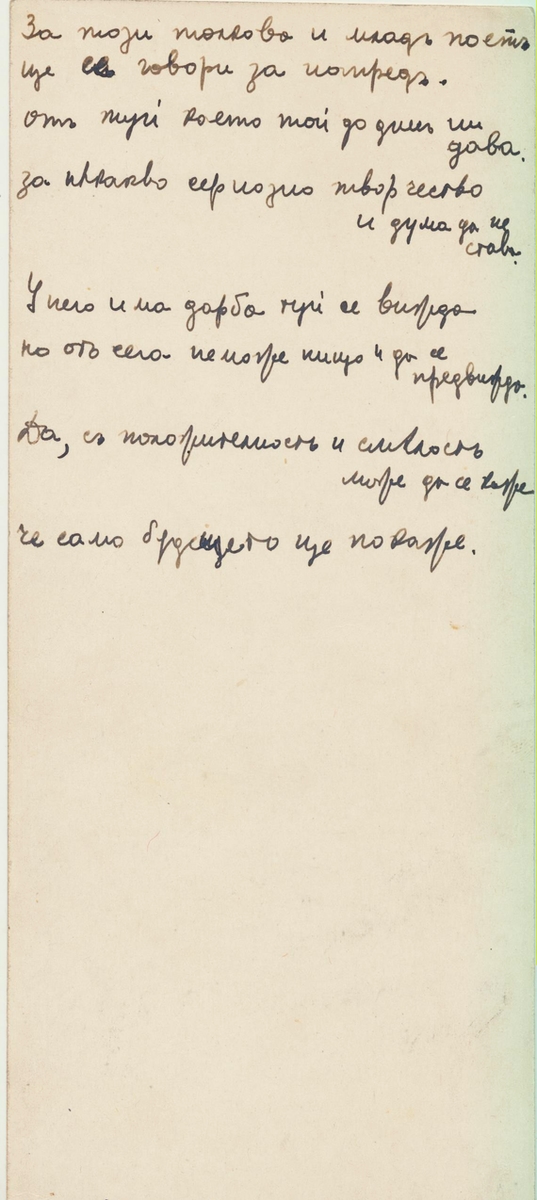 За този толкова и младъ поетъ
ще се говори за напредъ.
отъ туй което той до днесъ ни
дава.
за някакво сериозно творчество
и дума да не
става.
У него има дарба туй се вижда
но отъ сега неможе нищо да се
предвижда.
Да, съ положителность и смѣлость
може да се каже
че само бѫдещето ще покаже.